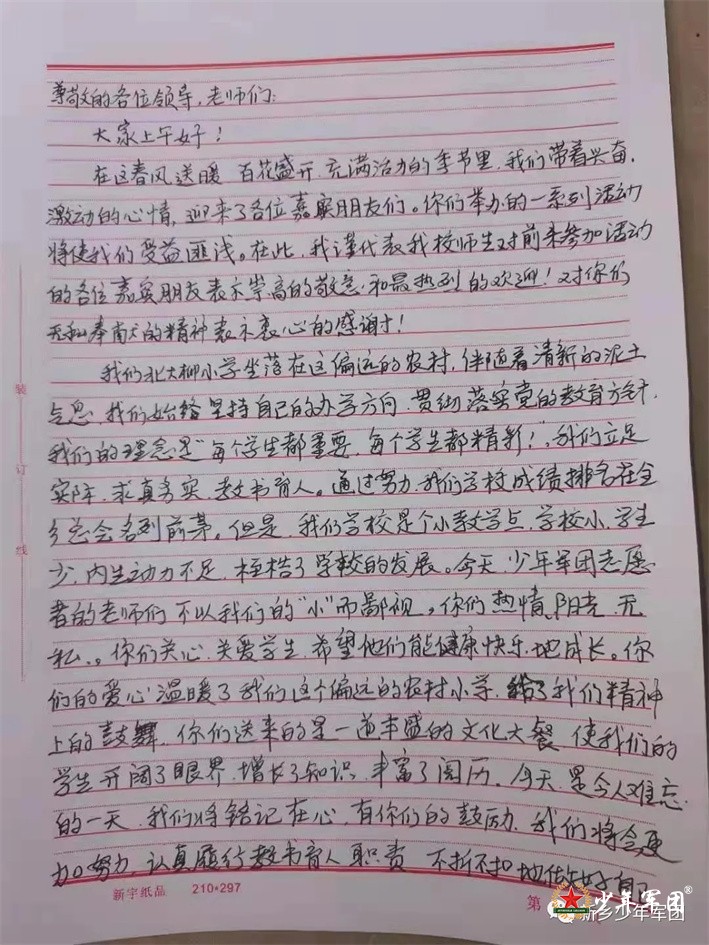 尊敬的各位领导,老师们:
大家上午好!
在这春风送暖 百花盛开 充满活力的季节里,我们带着兴奋,
激动的心情,迎来了各位嘉宾朋友们。你们举办的一系列活动
将使我们受益匪浅。在此,我谨代表我校师生对前来参加活动
的各位嘉宾朋友表示崇高的敬意和最热烈的欢迎!对你们
无私奉献的精神表示衷心的感谢!
我们北大柳小学坐落在这偏远的农村,伴随着清新的泥土
气息,我们始终坚持自己的办学方向,贯彻落实党的教育方针,
我们的理念是"每个学生都重要,每个学生都精彩!",我们立足
实际,求真务实,教书育人。通过努力,我们学校成绩排名在全
乡总会名列前茅。但是,我们学校是个小教学点,学校小,学生
少,内生动力不足,桎梏了学校的发展。今天,少年军团志愿
者的老师们不以我们的"小"而鄙视,你们热情、阳光、无
私、。你们关心、关爱学生,希望他们能健康快乐地成长。你
们的爱心温暖了我们这个偏远的农村小学,给了我们精神
上的鼓舞,你们送来的是一道丰盛的文化大餐,使我们的
学生开阔了眼界,增长了知识,丰富了阅历,今天,是令人难忘
的一天,我们将铭记在心,有你们的鼓励,我们将会更
加努力,认真履行教书育人职责,不折不扣地做好自己
装
订
线
新宇纸品 210*297
第
少年军团®
新乡少年军团